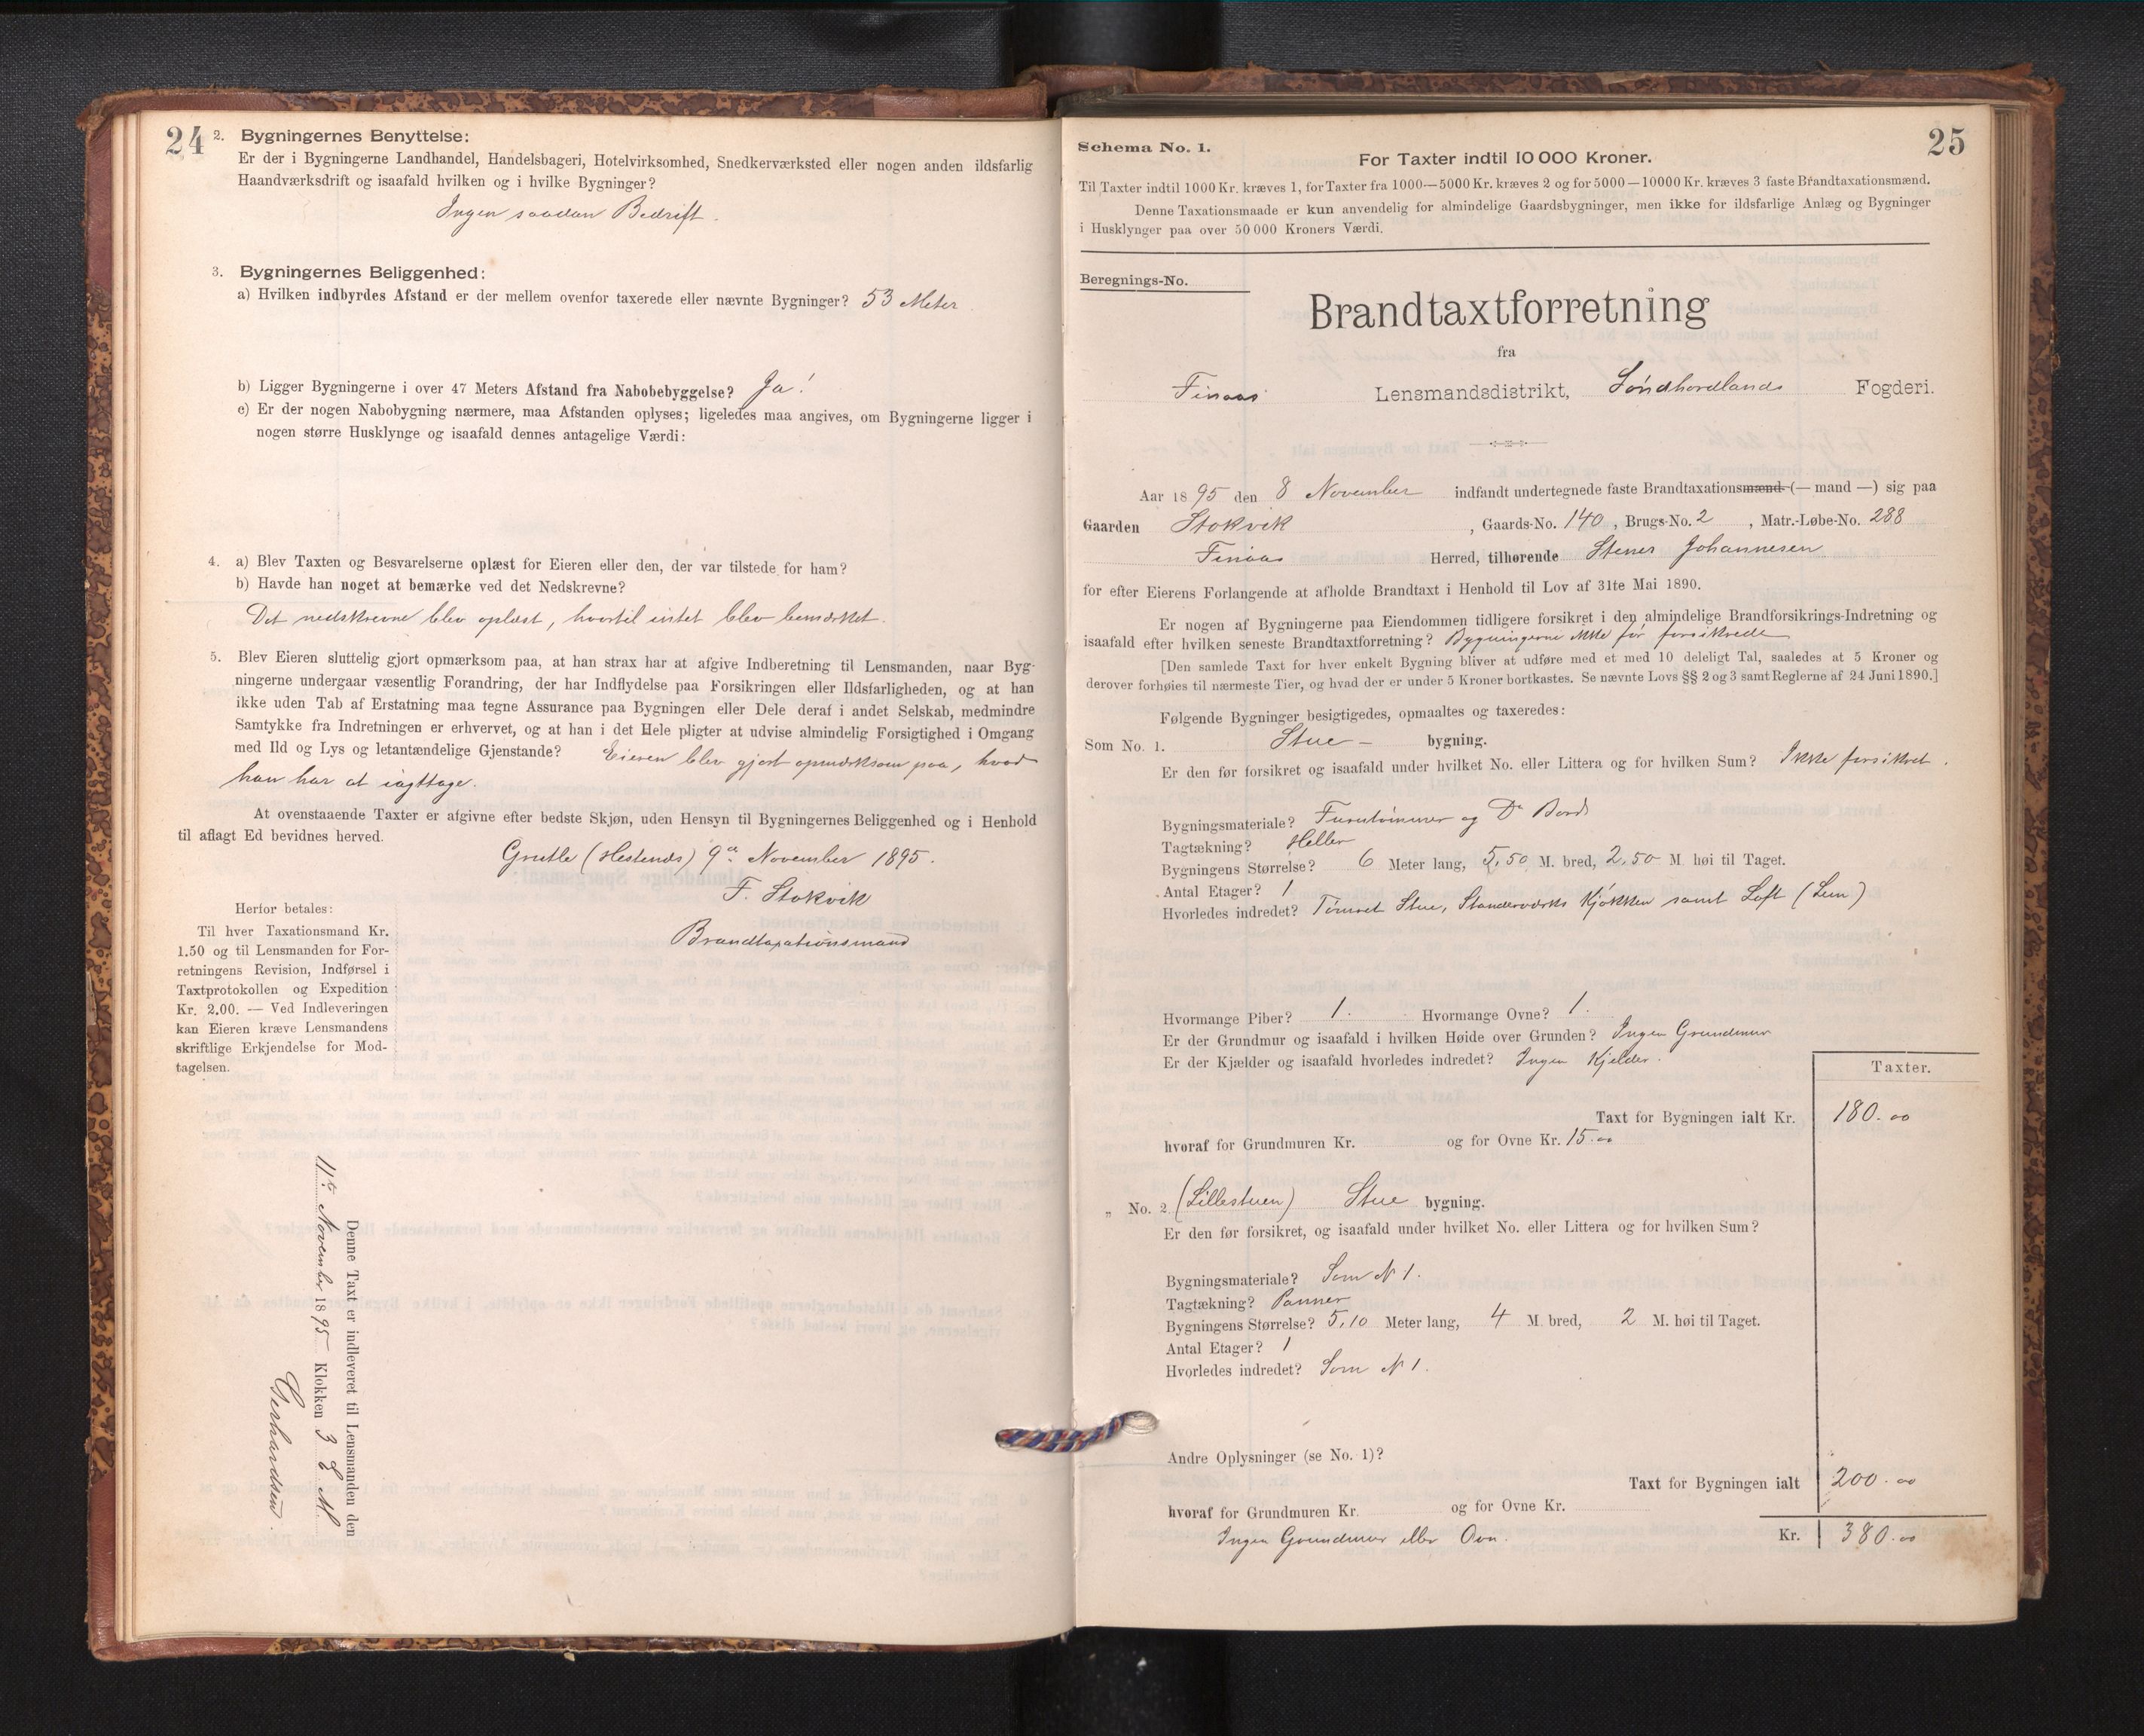 24
2. Bygningernes Benyttelse:
Er der i Bygningerne Landhandel, Handelsbageri, Hotelvirksomhed, Snedkerværksted eller nogen anden ildsfarlig
Haandværksdrift og isaafald hvilken og i hvilke Bygninger?
Ingen saadan Bedrift.
3. Bygningernes Beliggenhed:
a) Hvilken indbyrdes Afstand er der mellem ovenfor taxerede eller nævnte Bygninger? 53 Meter
b) Ligger Bygningerne i over 47 Meters Afstand fra Nabobebyggelse? Ja!
c) Er der nogen Nabobygning nærmere, maa Afstanden oplyses; ligeledes maa angives, om Bygningerne ligger i
nogen større Husklynge og isaafald dennes antagelige Værdi:
4. a) Blev Taxten og Besvarelserne oplæst for Eieren eller den, der var tilstede for ham?
b) Havde han noget at bemærke ved det Nedskrevne?
Det nedskrevne blev oplæst, hvortil intet blev bemærket.
5. Blev Eieren sluttelig gjort opmærksom paa, at han strax har at afgive Indberetning til Lensmanden, naar Byg-
ningerne undergaar væsentlig Forandring, der har Indflydelse paa Forsikringen eller Ildsfarligheden, og at han
ikke uden Tab af Erstatning maa tegne Assurance paa Bygningen eller Dele deraf i andet Selskab, medmindre
Samtykke fra Indretningen er erhvervet, og at han i det Hele pligter at udvise almindelig Forsigtighed i Omgang
med Ild og Lys og letantændelige Gjenstande? Eieren blev gjort opmærksom paa, hvad
han har at iagttage.
At ovenstaaende Taxter er afgivne efter bedste Skjøn, uden Hensyn til Bygningernes Beliggenhed og i Henhold
til aflagt Ed bevidnes herved.
(Hestenes) 9de November 1895.
F. Stokvik
Brandtaxationsmand
Herfor betales:
Til hver Taxationsmand Kr.
1.50 og til Lensmanden for For-
retningens Revision, Indførsel i
Taxtprotokollen og Expedition
Kr. 2.00. — Ved Indleveringen
kan Eieren kræve Lensmandens
skriftlige Erkjendelse for Mod-
tagelsen.
Denne Taxt er indleveret til Lensmanden den
11te November 1895 Klokken 3 E M.
Gerhardsen.
25
Schema No. 1.
For Taxter indtil 10 000 Kroner.
Til Taxter indtil 1000 Kr. kræves 1, for Taxter fra 1000—5000 Kr. kræves 2 og for 5000—10000 Kr. kræves 3 faste Brandtaxationsmænd.
Denne Taxationsmaade er kun anvendelig for almindelige Gaardsbygninger, men ikke for ildsfarlige Anlæg og Bygninger
i Husklynger paa over 50 000 Kroners Værdi.
Beregnings-No.
Brandtaxtforretning
fra
Finaas Lensmandsdistrikt, Søndhordlands Fogderi.
Aar 1895 den 8 November indfandt undertegnede faste Brandtaxationsmænd (— mand —) sig paa
Gaarden Stokvik, Gaards-No. 140, Brugs-No. 2, Matr.-Løbe-No. 288
Finaas Herred, tilhørende Stener Johannesen
for efter Eierens Forlangende at afholde Brandtaxt i Henhold til Lov af 31te Mai 1890.
Er nogen af Bygningerne paa Eiendommen tidligere forsikret i den almindelige Brandforsikrings-Indretning og
isaafald efter hvilken seneste Brandtaxtforretning? Bygningerne ikke før forsikrede
[Den samlede Taxt for hver enkelt Bygning bliver at udføre med et med 10 deleligt Tal, saaledes at 5 Kroner og
derover forhøies til nærmeste Tier, og hvad der er under 5 Kroner bortkastes. Se nævnte Lovs §§ 2 og 3 samt Reglerne af 24 Juni 1890.]
Følgende Bygninger besigtigedes, opmaaltes og taxeredes:
Som No. 1. Stue- bygning.
Er den før forsikret og isaafald under hvilket No. eller Littera og for hvilken Sum? Ikke forsikret.
Bygningsmateriale? Furutømmer og Do Bord
Tagtækning? Heller
Bygningens Størrelse? 6 Meter lang, 5,50 M. bred, 2,50 M. høi til Taget.
Antal Etager? 1
Hvorledes indredet? Tømret Stue, Standerværks Kjøkken samt Loft (Lem)
Hvormange Piber? 1. Hvormange Ovne? 1.
Er der Grundmur og isaafald i hvilken Høide over Grunden? Ingen Grundmur
Er der Kjælder og isaafald hvorledes indredet? Ingen Kjelder.
Taxter.
Taxt for Bygningen ialt Kr. 180.00
hvoraf for Grundmuren Kr. og for Ovne Kr. 15.00
„ No. 2 (Lillestuen) Stue bygning.
Er den før forsikret, og isaafald under hvilket No. eller Littera og for hvilken Sum?
Bygningsmateriale? Som N 1.
Tagtækning? Panner
Bygningens Størrelse? 5,10 Meter lang, 4 M. bred, 2 M. høi til Taget.
Antal Etager? 1
Hvorledes indredet? Som N 1.
Andre Oplysninger (se No. 1)?
Taxt for Bygningen ialt 200.00
hvoraf for Grundmuren Kr. og for Ovne Kr.
Ingen Grundmur eller Ovn.
Kr. 380.00